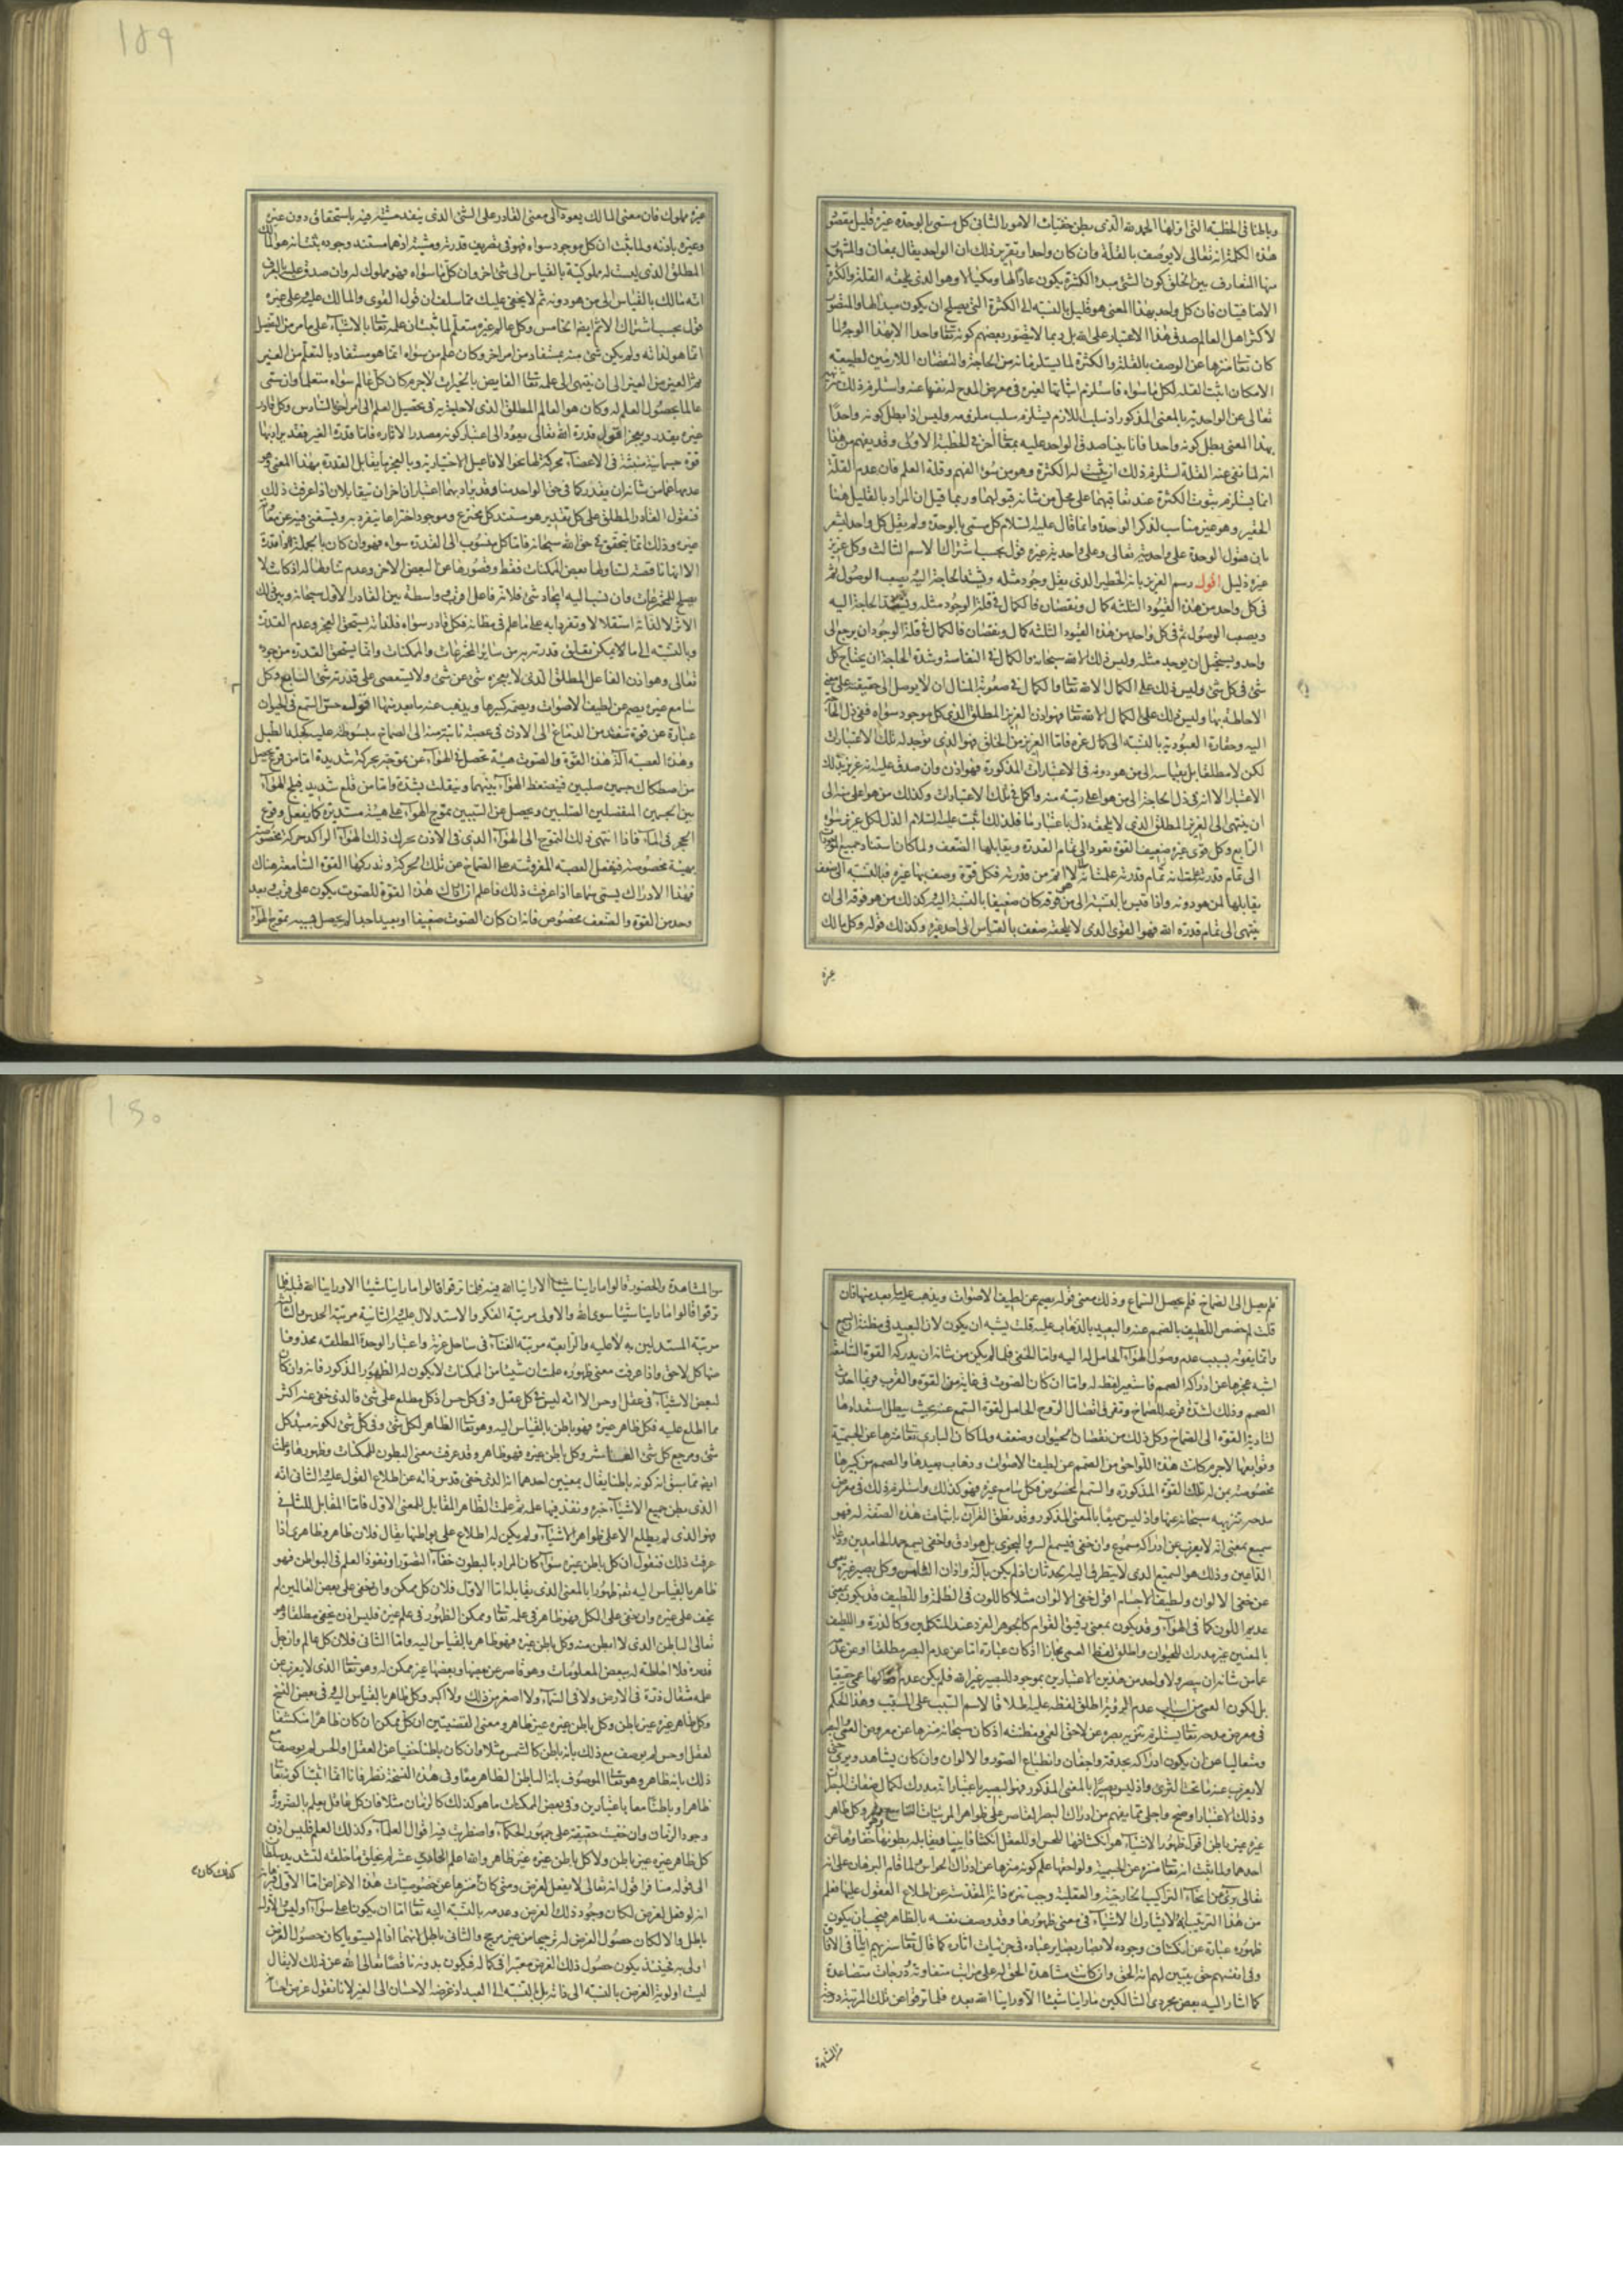 وباطنا فى الخطبة التى اولها الحمد لله الذى بطن خفيات الامور الثانى كل مسمى بالوحدة غيره قليل مقصود
هذه الكلمة انه تعالى لا يوصف بالقلة وان كان واحدا وتقرير ذلك ان الواحد يقال بمعان والمشهور
منها المتعارف بين الخلق كون الشئ مبدءا لكثرة يكون عادا لها ومكيالا وهو الذى تلحقه القلة والكثرة
الاضافيتان فان كل واحد بهذا المعنى هو قليل بالنسبة الى الكثرة التى يصلح ان يكون مبدا لها والمتصور
لاكثر اهل العالم صدق هذا الاعتبار على الله بل ربما لا يتصور بعضهم كونه تعا واحدا الا بهذا الوجه ولما
كان تعا منزها عن الوصف بالقلة والكثرة لما يستلزمانه من الحاجة والنقصان اللازمين لطبيعة
الامكان اثبت القلة لكل ما سواه فاستلزم اثباتها لغيره فى معرض المدح له نفيها عنه واستلزم ذلك تنزيهه
تعالى عن الواحدية بالمعنى المذكور اذ سلب اللازم يستلزم سلب ملزومه وليس اذا بطل كونه واحدا
بهذا المعنى بطل كونه واحدا فانا بينا صدق الواحد عليه بمعنا آخر فى الخطبة الاولى وقد يفهم من هنا
انه لما نفى عنه القلة استلزم ذلك ان يثبت له الكثرة وهو من سوء الفهم وقلة العلم فان عدم القلة
انما يستلزم ثبوت الكثرة عند تعاقبهما على محل من شانه قبولهما وربما قيل ان المراد بالقليل هنا
الحقير وهو غير مناسب لذكر الوحدة وانما قال عليه السلام كل مسمى بالوحدة ولم يقل كل واحد ليشعر
بان قبول الوحدة على واحديته تعالى وعلى واحدية غيره قول بحسب اشتراك الاسم الثالث وكل عزيز
غيره ذليل اقول رسم العزيز بانه الخطير الذى يقل وجود مثله وتشتد الحاجة اليه ويصعب الوصول ثم
فى كل واحد من هذه القيود الثلثة كمال ونقصان فالكمال فى قلة الوجود مثله وتشتد الحاجة اليه
ويصعب الوصول ثم فى كل واحد من هذه القيود الثلثة كمال ونقصان فالكمال فى قلة الوجود ان يرجع الى
واحد ويستحيل ان يوجد مثله وليس ذلك الا لله سبحانه والكمال فى النفاسة وشدة الحاجة ان يحتاج كل
شئ فى كل شئ وليس ذلك على الكمال الا لله تعا والكمال فى صعوبة المنال ان لا يوصل الى حقيقته على معنى
الاحاطة بها وليس ذلك على الكمال الا لله تعا فهو اذن العزيز المطلق الذى كل موجود سواه ففى ذل الحاجة
اليه وحقارة العبودية بالنسبة الى كمال عزه فاما العزيز من الخلق فهو الذى يوجد له تلك الاعتبارات
لكن لا مطلقا بل بقياسه الى من هو دونه فى الاعتبارات المذكورة فهو اذن وان صدق عليه انه عزيز بتلك
الاعتبار الا انه فى ذل الحاجة الى من هو اعلى رتبة منه واكمل فى تلك الاعتبارات وكذلك من هو اعلى منه الى
ان ينتهى الى العزيز المطلق الذى لا يلحقه ذل باعتبار ما فلذلك اثبت عليه السلام الذل لكل عزيز سواه
الرابع وكل قوى غيره ضعيف القوة تعود الى تمام القدرة ويقابلها الضعف ولما كان استناد جميع الموجودات
الى تمام قدرته علمت انه لا اتم من قدرته فكل قوة وصف بها غيره فبالنسبة الى ضعف
يقابلها لمن هو دونه واذا قيس بالنسبة الى من فوقه كان ضعيفا بالنسبة اليه وكذلك من هو فوقه الى ان
ينتهى الى تمام قدرة الله فهو القوى الذى لا يلحقه ضعف بالقياس الى احد غيره وكذلك قوله وكل مالك
غيره
١٥٩
غيره مملوك فان معنى المالك يعود الى معنى القادر على الشئ الذى ينفذ مشيته فيه باستحقاق دون غيره
وغيره باذنه ولما ثبت ان كل موجود سواه فهو فى تصريف قدرته ومشيته اذ هما مستند وجوده ثبت انه هو المالك
المطلق الذى ليست له مملوكية بالقياس الى شئ آخر وان كل ما سواه فهو مملوك له وان صدق عليه بالعرف
انه مالك بالقياس الى من هو دونه ثم لا يخفى عليك مما سلف ان قول القوى والمالك عليه وعلى غيره
قول بحسب اشتراك الاسم ايضا الخامس وكل عالم غيره متعلم لما ثبت ان علمه تعا بالاشياء على ما مر من التفصيل
انما هو لذاته ولم يكن شئ منه بمستفاد من امر آخر وكان علم من سواه انما هو مستفاد بالتعلم من الغير
ثم الغير من الغير الى ان ينتهى الى علمه تعا الفايض بالخيرات لا جرم كان كل عالم سواه متعلما وان سمى
عالما بحصول العلم له وكان هو العالم المطلق الذى لا حاجة به فى تحصيل العلم الى امر آخر السادس وكل قادر
غيره يقدر ويعجز اقول قدرة الله تعالى يعود الى اعتبار كونه مصدرا لآثاره فاما قدرة الغير فقد يراد بها
قوة جسمانية منبثة فى الاعضاء محركة لها نحو الافاعيل الاختيارية وبالعجز ما يقابل القدرة بهذا المعنى وهو
عدمها عما من شانه ان يقدر كما فى حق الواحد منا وقد يراد بهما اعتباران آخران يتقابلان اذا عرفت ذلك
فنقول القادر المطلق على كل تقدير هو مستند كل مخترع وموجود اختراعا يتفرد به ويستغنى فيه عن معونة
غيره وذلك انما يتحقق فى حق الله سبحانه فاما كل منسوب الى القدرة سواه فهو وان كان بالجملة ذا قدرة
الا انها ناقصة لتناولها بعض الممكنات فقط وقصورها عن البعض الآخر وعدم تناولها له اذ كانت لا
يصلح للمخترعات وان نسب اليه ايجاد شئ فلانه فاعل اقرب وواسطة بين القادر الاول سبحانه وبين ذلك
الاثر لا لذاته استقلالا وتفردا به على ما علم فى مظانه فكل قادر سواه فلذاته يستحق العجز وعدم القدرة
وبالنسبة الى ما لا يمكن تعلق قدرته به من ساير المخترعات والممكنات وانما يستحق القدرة من جوده
تعالى وهو اذن الفاعل المطلق الذى لا يعجزه شئ عن شئ ولا يستعصى على قدرته شئ السابع وكل
سامع غيره يصم عن لطيف الاصوات ويصمه كبيرها ويذهب عنه ما بعد منها اقول حس السمع فى الحيوان
عبارة عن قوة تنفذ من الدماغ الى الاذن فى عصبة ثابتة منه الى الصماخ مبسوطة عليه كجلد الطبل
وهذه العصبة آلة هذه القوة والصوت هيئة تحصل فى الهواء عن تموجه بحركة شديدة اما من قرع يحصل
من اصطكاك جسمين صلبين فينضغط الهواء بينهما وينفلت بشدة واما من قلع شديد فيلج الهواء
بين الجسمين المنفصلين الصلبين ويحصل عن السببين تموج الهواء على هيئة مستديرة كما يفعل وقوع
الحجر فى الماء فاذا انتهى ذلك التموج الى الهواء الذى فى الاذن تحرك ذلك الهواء الراكد حركة مخصوصة
بهيئة مخصوصة فينفعل العصبة المفروشة على الصماخ عن تلك الحركة وتدركها القوة السامعة هناك
فهذا الادراك يسمى سماعا اذا عرفت ذلك فاعلم ان ادراك هذه القوة للصوت يكون على قرب وبعد
وحد من القوة والضعف مخصوص فانه ان كان الصوت ضعيفا او بعيدا جدا لم يحصل بسببه تموج الهواء
فلم يصل الى الصماخ فلم يحصل السماع وذلك معنى قوله يصم عن لطيف الاصوات ويذهب عليه ما بعد منها فان
قلت لم خصص اللطيف بالصمم عنه والبعيد بالذهاب عليه قلت يشبه ان يكون لان البعيد فى مظنة ان يسمع
وانما يفوته بسبب عدم وصول الهواء الحامل له اليه واما الخفى فلما لم يكن من شانه ان يدركه القوة السامعة
اشبه عجزها عن ادراكه الصمم فاستعير لفظه له واما ان كان الصوت فى غاية من القوة والقرب فربما احدث
الصمم وذلك لشدة قرعه للصماخ وتفرق اتصال الروح الحامل لقوة السمع عنه بحيث يبطل استعدادها
لتادية القوة الى الصماخ وكل ذلك من نقصان الحيوان وضعفه ولما كان البارى تعا منزها عن الجسمية
وتوابعها لا جرم كانت هذه اللواحق من الصمم عن لطيف الاصوات وذهاب بعيدها والصمم من كبيرها
مخصوصة بمن له تلك القوة المذكورة والسمع المخصوص فكل سامع غيره فهو كذلك واستلزم ذلك فى معرض
مدحه تنزيهه سبحانه عنها واذ ليس سميعا بالمعنى المذكور وقد نطق القرآن باثبات هذه الصفة له فهو
سميع بمعنى انه لا يعزب عن ادراكه مسموع وان خفى فيسمع السر والنجوى بل ما هو ادق واخفى يسمع حمد الحامدين ودعاء
الداعين وذلك هو السميع الذى لا يتطرق اليه الحدثان اذ لم يكن بآلة واذان الثامن وكل بصير غيره يعمى
عن خفى الالوان ولطيف الاجسام اقول خفى الالوان مثلا كاللون فى الظلمة واللطيف قد يكون بمعنى
عديم اللون كما فى الهواء وقد يكون بمعنى رقيق القوام كالجوهر الفرد عند المتكلمين وكالذرة واللطيف
بالمعنيين غير مدرك للحيوان واطلق لفظ العمى مجازا اذ كان عبارة اما عن عدم البصر مطلقا او عن عدمه
عما من شانه ان يبصر ولا واحد من هذين الاعتبارين بموجود للبصير غير الله فلم يكن عدم ادراكها عمى حقيقيا
بل لكون العمى من اسباب عدم الرؤية اطلق لفظه عليه اطلاقا لاسم السبب على المسبب وهذا الحكم
فى معرض مدحه تعا يستلزم تنزيه بصره عن لاحق العمى ومظنته اذ كان سبحانه منزها عن معروض العمى والبصر
ومتعاليا عن ان يكون ادراكه بحدقة واجفان وانطباع الصور والالوان وان كان يشاهد ويرى حتى
لا يعزب عنه ما تحت الثرى واذ ليس بصيرا بالمعنى المذكور فهو البصير باعتبار انه مدرك لكمال صفات المبصرات
وذلك الاعتبار اوضح واجلى مما يفهم من ادراك البصر القاصر على ظواهر المرئيات التاسع وكل ظاهر
غيره غير باطن اقول ظهور الاشياء هو انكشافها للحس او للعقل انكشافا بينا ويقابله بطونها وهو خفاؤها عن
احدهما ولما ثبت انه تعا منزه عن الجسمية ولواحقها علم كونه منزها عن ادراك الحواس ولما قام البرهان على انه
تعالى برئ من انحاء التراكيب الخارجية والعقلية وجب تنزه ذاته المقدسة عن اطلاع العقول عليها فعلم
من هذا الترتيب انه لا يشارك الاشياء فى معنى ظهورها وقد وصف نفسه بالظاهر فيجب ان يكون
ظهوره عبارة عن انكشاف وجوده لابصار بصاير عباده فى جزئيات آثاره كما قال تعا سنريهم آياتنا فى الآفاق
وفى انفسهم حتى يتبين لهم انه الحق وان كانت مشاهدة الحق له على مراتب متفاوتة ودرجات متصاعدة
كما اشار اليه بعض مجردى السالكين ما راينا شيئا الا وراينا الله بعده فلما ترقوا عن تلك المرتبة درجة
من المشاهدة
١٦٠
من المشاهدة والحضور قالوا ما راينا شيئا الا راينا الله فيه فلما ترقوا قالوا ما راينا شيئا الا وراينا الله قبله فلما
ترقوا قالوا ما راينا شيئا سوى الله والاولى مرتبة الفكر والاستدلال عليه والثانية مرتبة الحدس والثالثة
مرتبة المستدلين به لا عليه والرابعة مرتبة الفناء فى ساحل عزته واعتبار الوحدة المطلقة محذوفا
منها كل لاحق واذا عرفت معنى ظهوره علمت ان شيئا من الممكنات لا يكون له الظهور المذكور فانه وان كان
لبعض الاشياء فى عقل او حس الا انه ليس فى كل عقل وفى كل حس اذ كل مطلع على شئ فالذى خفى عنه اكثر
مما اطلع عليه فكل ظاهر غيره فهو باطن بالقياس اليه وهو تعا الظاهر لكل شئ وفى كل شئ لكونه مبدء كل
شئ ومرجع كل شئ العاشر وكل باطن غيره فهو ظاهر وقد عرفت معنى البطون للممكنات وظهورها وعلمت
ايضا مما سبق انه كونه باطنا يقال بمعنيين احدهما انه الذى خفى قدس ذاته عن اطلاع العقول عليه الثانى انه
الذى بطن جميع الاشياء خبره ونفذ فيها علمه ثم علمت الظاهر المقابل للمعنى الاول فاما المقابل للثانى
فهو الذى لم يطلع الا على ظواهر الاشياء ولم يكن له اطلاع على بواطنها يقال فلان ظاهر وظاهرى اذا
عرفت ذلك فنقول ان كل باطن غيره سواء كان المراد بالبطون خفاء التصور او نفوذ العلم فى البواطن فهو
ظاهر بالقياس اليه تعا ظهورا بالمعنى الذى يقابله اما الاول فلان كل ممكن وان خفى على بعض العالمين لم
يخف على غيره وان خفى على الكل فهو ظاهر فى علمه تعا وممكن الظهور فى علم غيره فليس اذن بخفى مطلقا وهو
تعالى الباطن الذى لا ابطن منه وكل باطن غيره فهو ظاهر بالقياس اليه واما الثانى فلان كل عالم وان جل
قدره فلا احاطة له ببعض المعلومات وهو قاصر عن بعضها وبعضها غير ممكن له وهو تعا الذى لا يعزب عن
علمه مثقال ذرة فى الارض ولا فى السماء ولا اصغر من ذلك ولا اكبر وكل ظاهر بالقياس اليه وفى بعض النسخ
وكل ظاهر غيره غير باطن وكل باطن غيره غير ظاهر ومعنى القضيتين ان كل ممكن ان كان ظاهرا منكشفا
لعقل او حس لم يوصف مع ذلك بانه باطن كالشمس مثلا وان كان باطنا خفيا عن العقل او الحس لم يوصف مع
ذلك بانه ظاهر وهو تعا الموصوف بانه الباطن الظاهر معا وفى هذه النسخة نظر فانا انما اثبتنا كونه تعا
ظاهرا وباطنا معا باعتبارين وفى بعض الممكنات ما هو كذلك كالزمان مثلا فان كل عاقل يعلم بالضرورة
وجود الزمان وان خفيت حقيقته على جمهور الحكماء واضطربت فيه اقوال العلماء وكذلك العلم فليس اذن
كل ظاهر غيره غير باطن ولا كل باطن غيره غير ظاهر والله اعلم الحادى عشر لم يخلق ما خلقه لتشديد سلطان
الى قوله منافر اقول انه تعالى لا يفعل لغرض ومتى كان منزها عن خصوصيات هذه الاغراض اما الاول فبرهانه
انه لو فعل لغرض لكان وجود ذلك الغرض وعدمه بالنسبة اليه تعا اما ان يكونا على سواء او ليس والاول
باطل والا لكان حصول الغرض له ترجيحا من غير مرجح والثانى باطل لانهما اذا لم يستويا كان حصول الغرض
اولى به فحينئذ يكون حصول ذلك الغرض معتبرا فى كماله فيكون بدونه ناقصا تعالى الله عن ذلك لا يقال
ليست اولوية الغرض بالنسبة الى ذاته بل بالنسبة الى العبد اذ غرضه الاحسان الى الغير لانا نقول غرض احسا